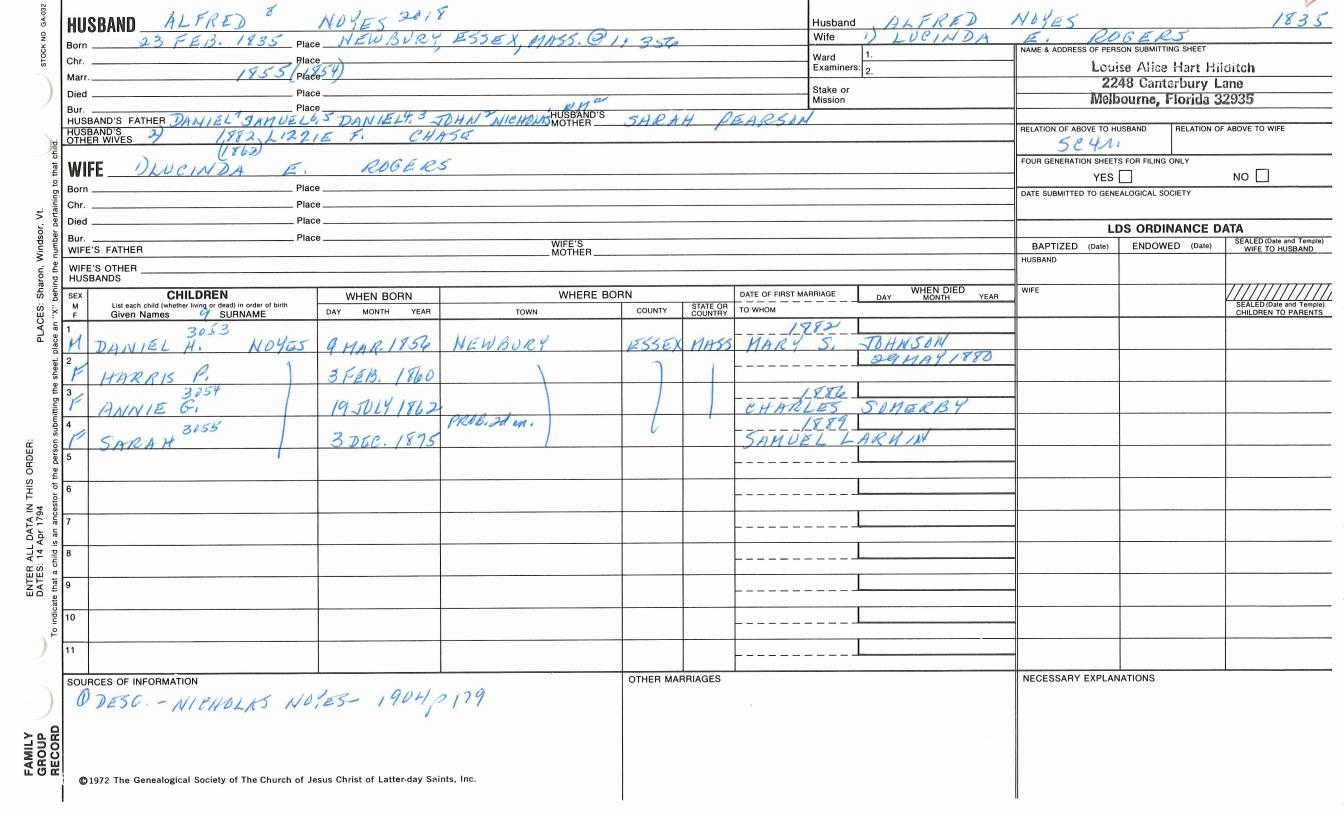 STOCK NO GA-032
HUSBAND ALFRED 8 NOYES 2018
Born 23 FEB. 1835 Place NEWBURY, ESSEX, MASS. @ 1: 356
Chr. Place
Marr. 1855 (1854) Place
Died Place
Bur. Place
HUSBAND'S FATHER DANIEL7 SAMUEL6,5 DANIEL4,3 JOHN2 NICHOLAS HUSBAND'S MOTHER SARAH PEARSON
HUSBAND'S OTHER WIVES 2) 1882 LIZZIE F. CHASE
(1862)
WIFE 1) LUCINDA E. ROGERS
Born Place
Chr. Place
Died Place
Bur. Place
WIFE'S FATHER WIFE'S MOTHER
WIFE'S OTHER HUSBANDS
Husband ALFRED NOYES 1835
Wife 1) LUCINDA E. ROGERS
Ward Examiners: 1.
2.
Stake or Mission
NAME & ADDRESS OF PERSON SUBMITTING SHEET
Louise Alice Hart Hilditch
2248 Canterbury Lane
Melbourne, Florida 32935
RELATION OF ABOVE TO HUSBAND RELATION OF ABOVE TO WIFE
5C4R
FOUR GENERATION SHEETS FOR FILING ONLY
YES NO
DATE SUBMITTED TO GENEALOGICAL SOCIETY
LDS ORDINANCE DATA
BAPTIZED (Date) ENDOWED (Date) SEALED (Date and Temple) WIFE TO HUSBAND
HUSBAND
WIFE
SEALED (Date and Temple) CHILDREN TO PARENTS
SEX M F CHILDREN WHEN BORN WHERE BORN DATE OF FIRST MARRIAGE WHEN DIED
List each child (whether living or dead) in order of birth
Given Names 9 SURNAME DAY MONTH YEAR TOWN COUNTY STATE OR COUNTRY TO WHOM DAY MONTH YEAR
1 3053 1882
M DANIEL H. NOYES 9 MAR. 1856 NEWBURY ESSEX MASS MARY S. JOHNSON
2 29 MAY 1880
F HARRIS P. 3 FEB. 1860
3 3054 1886
F ANNIE G. 19 JULY 1862 CHARLES SOMERBY
4 3055 PROB. 2d m. 1889
F SARAH 3 DEC. 1875 SAMUEL LARKIN
5
6
7
8
9
10
11
SOURCES OF INFORMATION OTHER MARRIAGES NECESSARY EXPLANATIONS
① DESC. - NICHOLAS NOYES - 1904 p 179
©1972 The Genealogical Society of The Church of Jesus Christ of Latter-day Saints, Inc.
FAMILY
GROUP
RECORD
ENTER ALL DATA IN THIS ORDER:
DATES: 14 Apr 1794 PLACES: Sharon, Windsor, Vt.
To indicate that a child is an ancestor of the person submitting the sheet, place an "X" behind the number pertaining to that child.